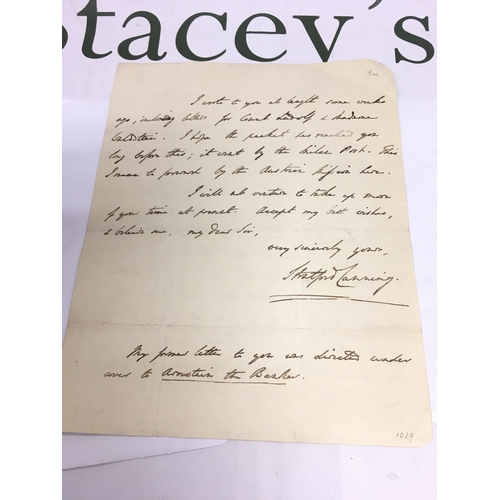 Stacey's
I wrote to you at length some weeks
ago, inclosing letters for Count Ludolf & Madame
I hope the packet has reached you
long before this; it went by the Milan Post. This
I mean to forward by the Austrian Mission here.
I will not venture to take up more
of your time at present. Accept my best wishes,
& believe me, my dear Sir,
very sincerely yours,
Stratford Canning.
My former letter to you was directed under
cover to Arnstein the Banker.
1019